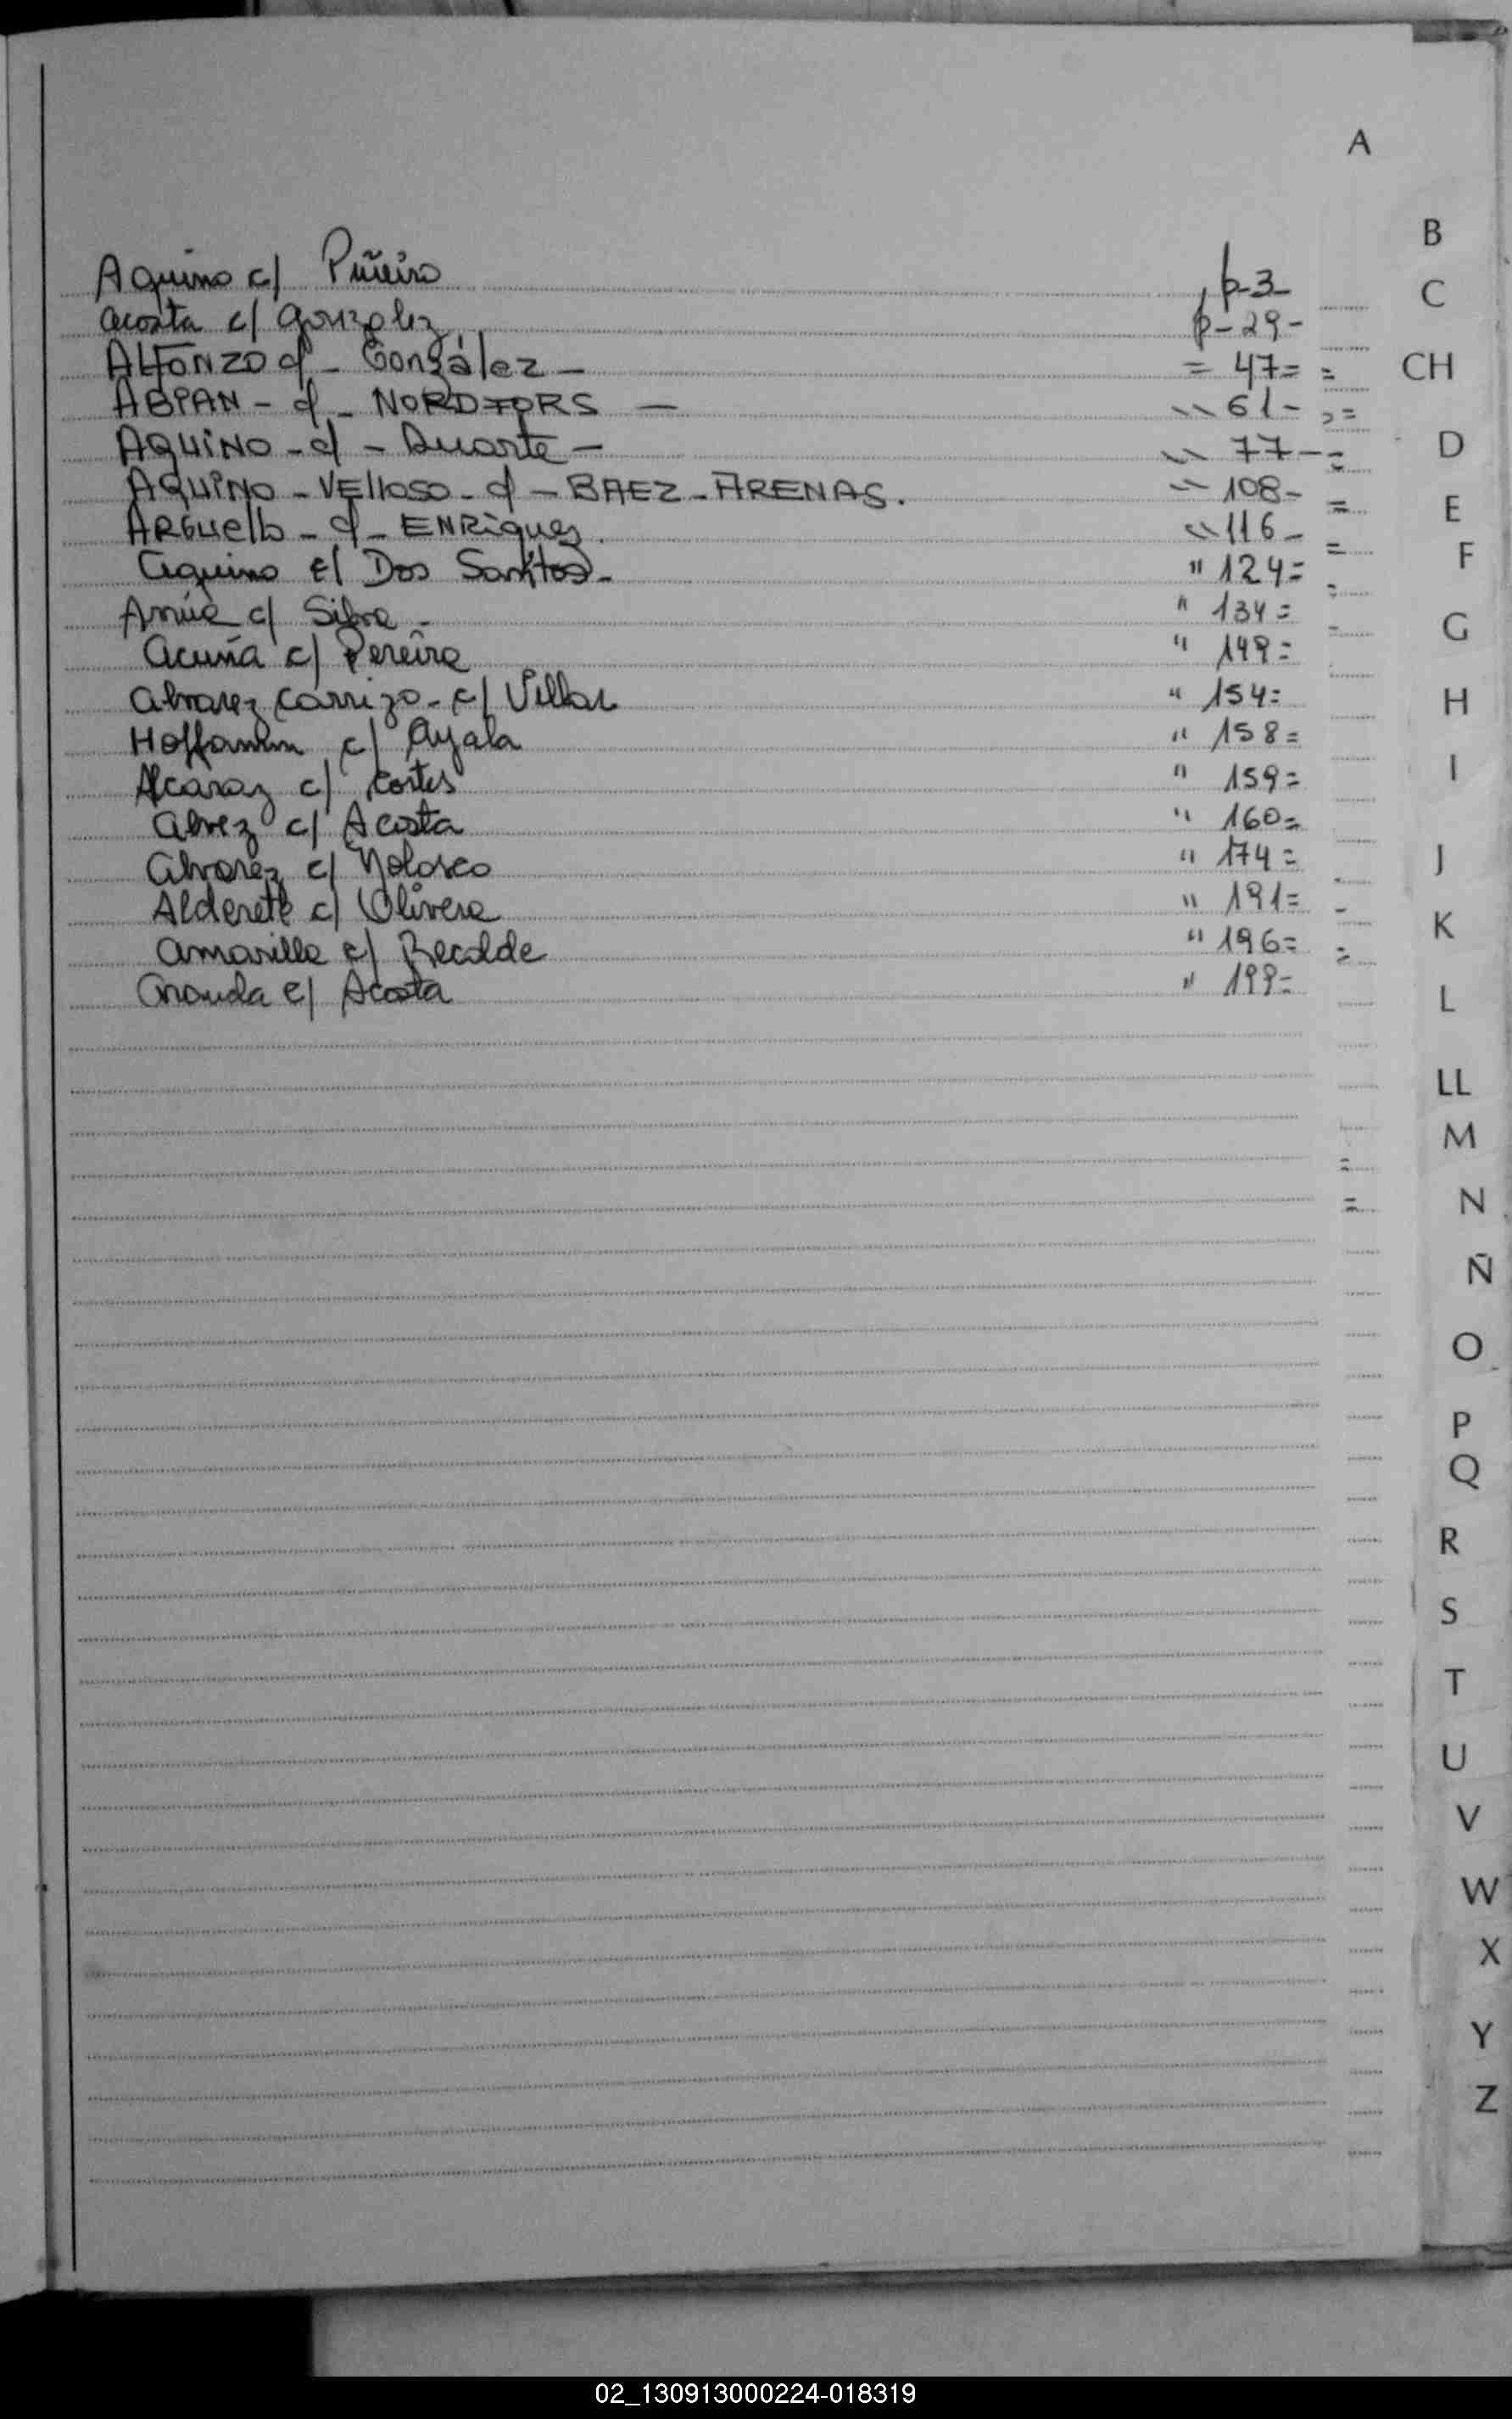 A
Aquino c/ Piñeiro p-3-
Acosta c/ González p-29-
ALFONZO c/ - González - = 47=
ABPAN - c/ - NORDFORS - " 61-
AQUINO - c/ - Duarte - " 77-
AQUINO - VELLOSO - c/ - BAEZ - ARENAS. " 108-
ARGUELLO - c/ - ENRIQUEZ. " 116-
Aquino c/ Dos Santos - " 124=
c/ Silva - " 134=
Acuña c/ Pereira " 149=
Alvarez Carrizo - c/ Villar " 154=
Hoffamnn c/ Ayala " 158=
Alcaraz c/ Cortes " 159=
Alvez c/ Acosta " 160=
Alvarez c/ Nolosco " 174=
Alderete c/ Olivera " 191=
Amarilla c/ Recalde " 196=
c/ Acosta " 199=
B
C
CH
D
E
F
G
H
I
J
K
L
LL
M
N
Ñ
O
P
Q
R
S
T
U
V
W
X
Y
Z
02_130913000224-018319